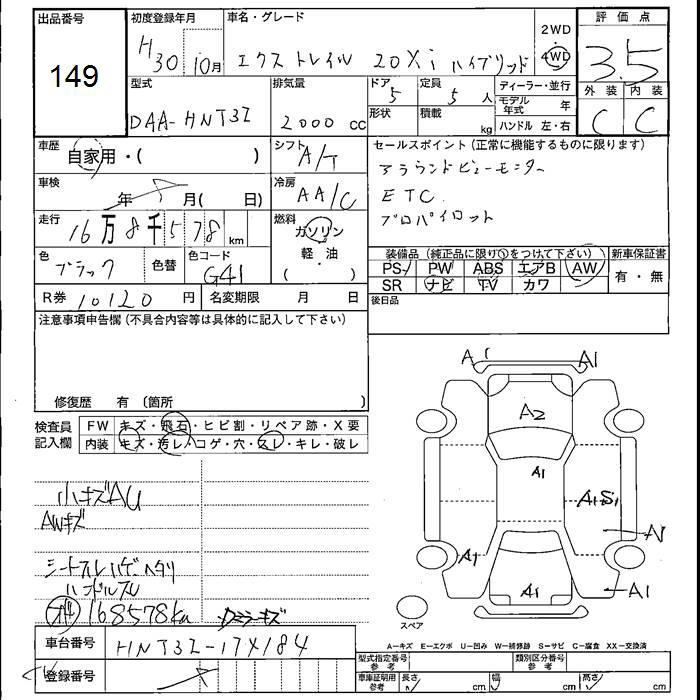 出品番号 初度登録年月 車名・グレード 2WD 評価点
149 H30 10月 エクストレイル 20Xi ハイブリッド 4WD 3.5
型式 排気量 ドア 定員 ディーラー・並行 外装 内装
DAA-HNT32 2000 cc 5 5人 モデル年式 年 C C
形状 積載 kg ハンドル 左・右
車歴 自家用・( ) シフト A/T セールスポイント(正常に機能するものに限ります)
アラウンドビューモニター
車検 年 月( 日) 冷房 AA/C ETC
走行 16万8千578km 燃料 ガソリン プロパイロット
軽・油
( )
色 ブラック 色替 色コード G41 装備品(純正品に限り○をつけて下さい) 新車保証書
PS PW ABS エアB AW 有・無
SR ナビ TV カワ
R券 10120 円 名変期限 月 日 後日品
注意事項申告欄(不具合内容等は具体的に記入して下さい)
修復歴 有(箇所 )
検査員記入欄 FW キズ・飛石・ヒビ割・リペア跡・X要
内装 キズ・汚レ・コゲ・穴・スレ・キレ・破レ
小キズAU
AWキズ
シートスレハゲヘタリ
ハンドルスレ
168578km
A1 A1
A2
A1
A1S1
A1
A1 A1
スペア
A-キズ E-エクボ U-凹み W-補修跡 S-サビ C-腐食 XX-交換済
車台番号 HNT32-174184
登録番号
型式指定番号 参考 類別区分番号 参考
車庫証明用 参考 長さ cm 幅 cm 高さ cm